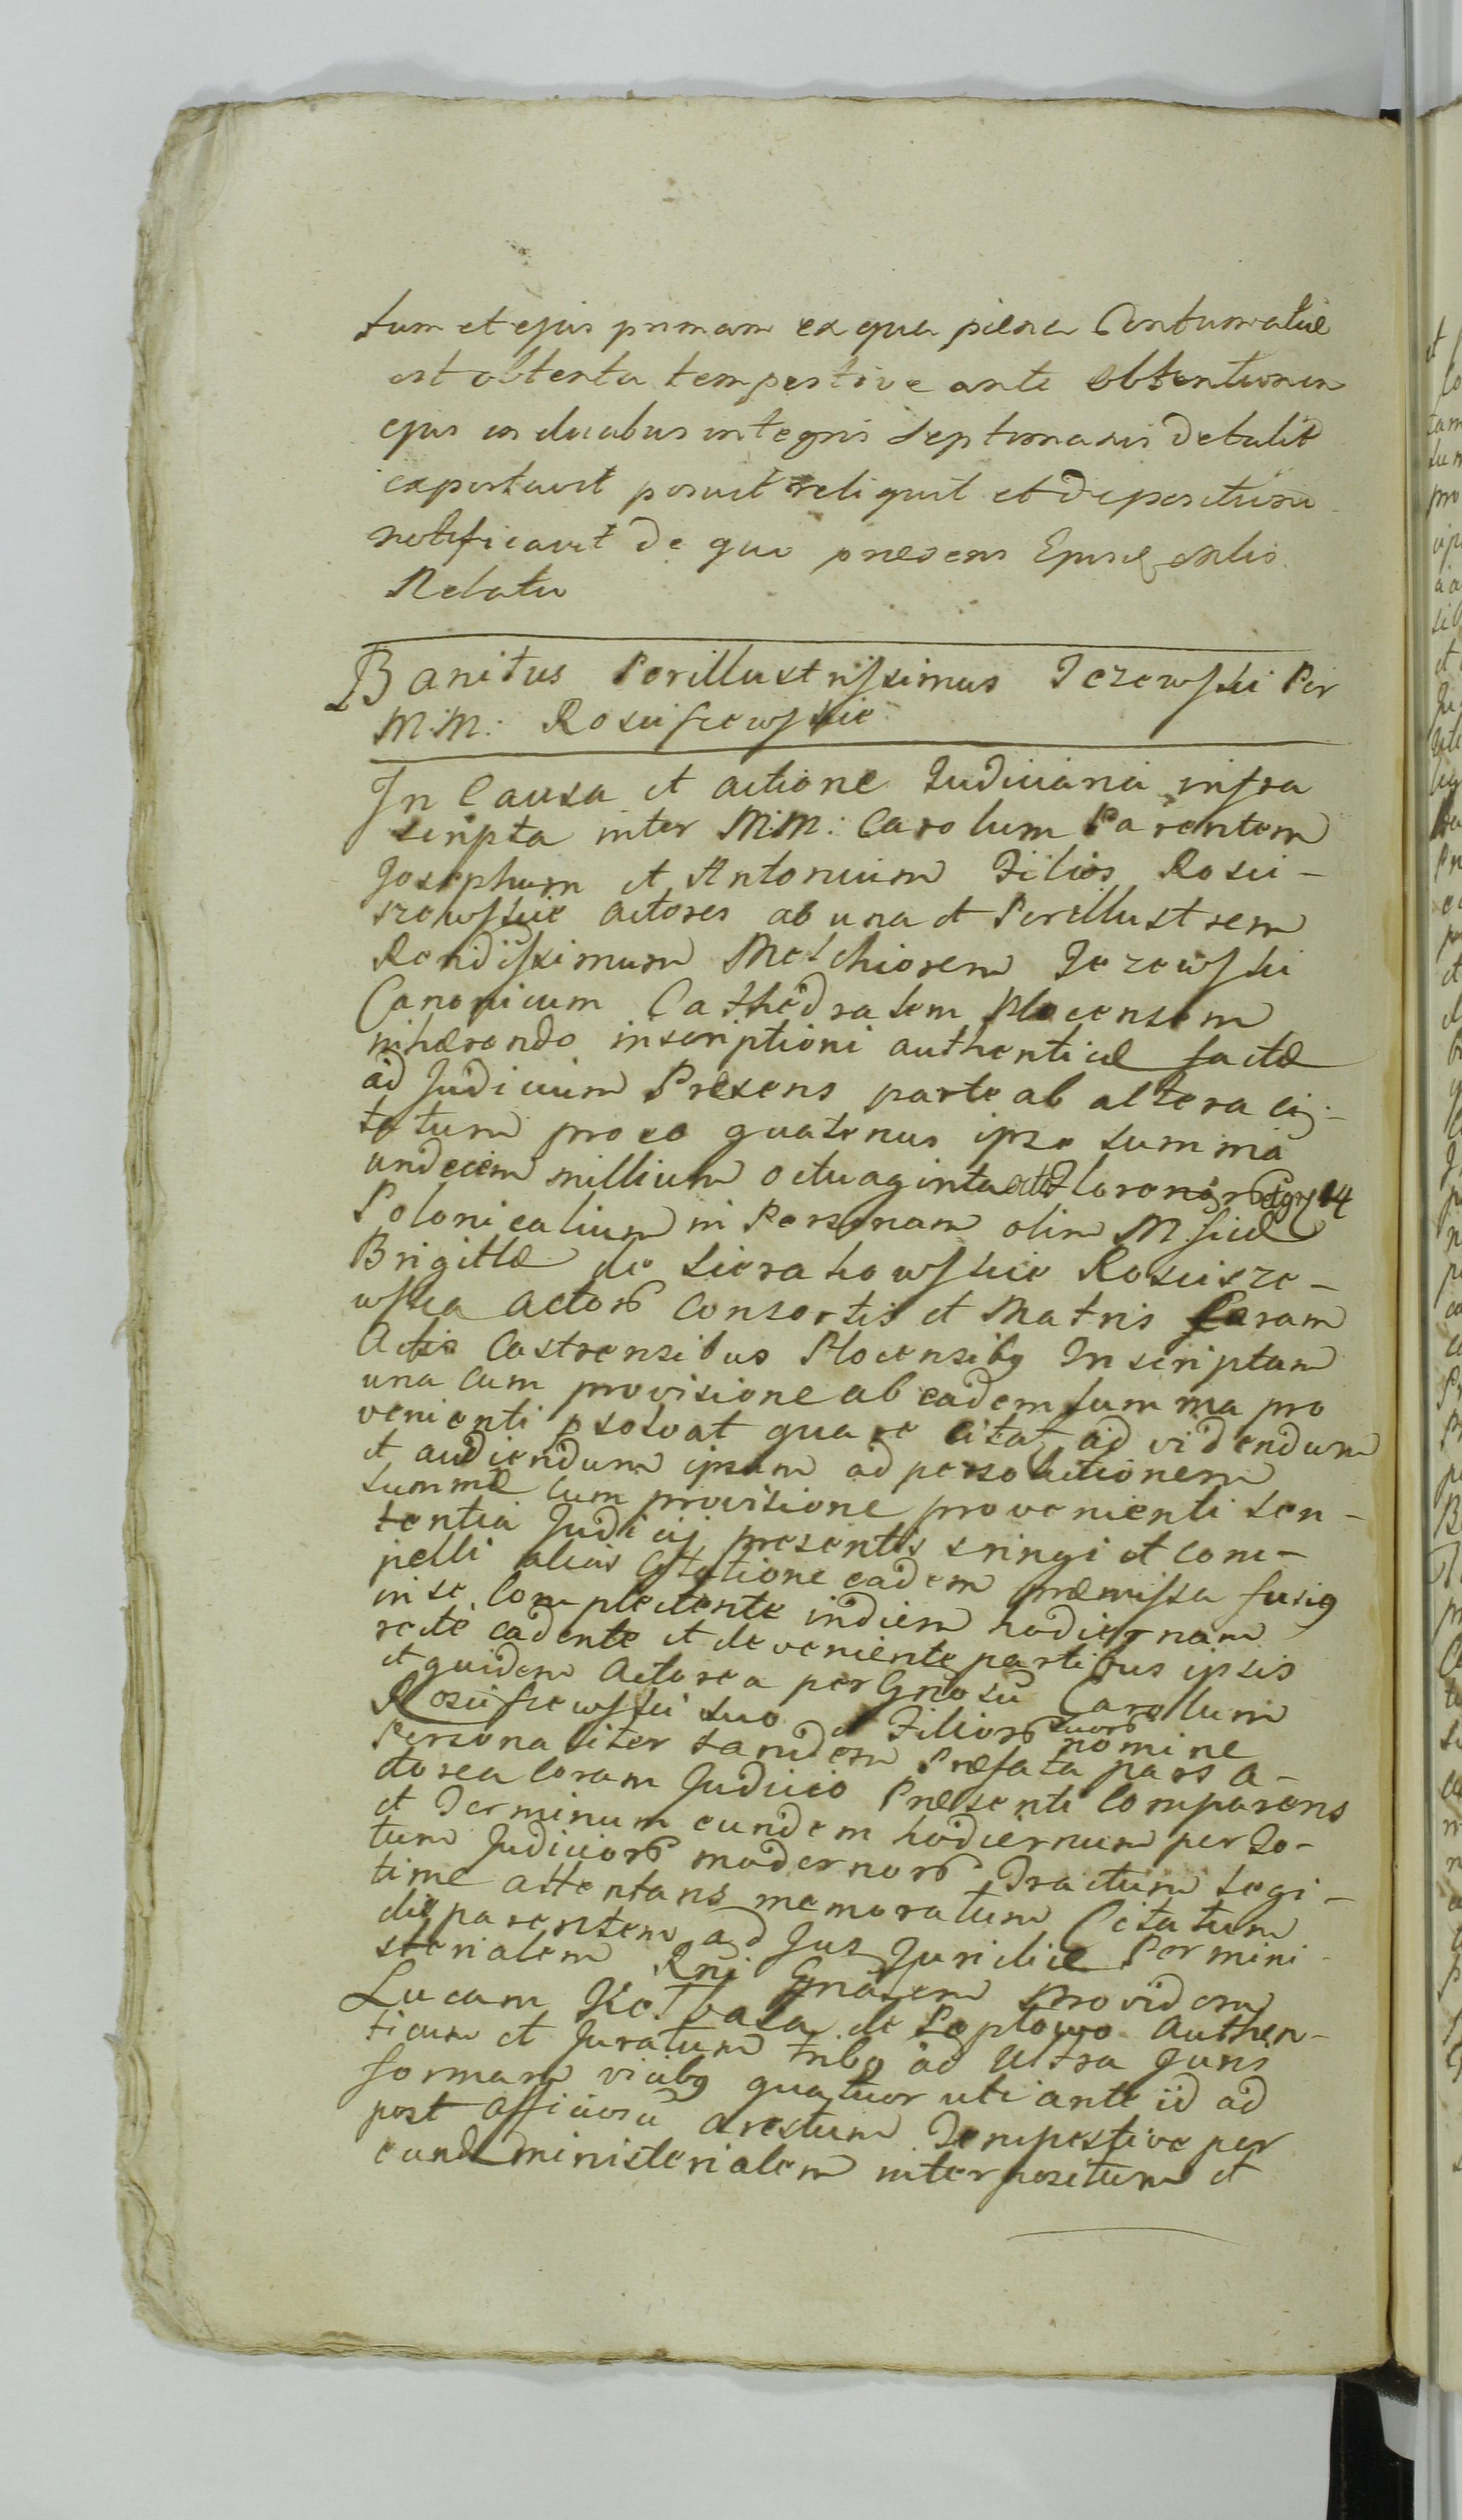 tum et ejus primam ex qua pæna Contumatiæ
est obtenta tempestive ante obtentionem
ejus in duabus integris septimanis detulit
exportavit posuit reliquit et depositum
notificavit De quo præsens Ejusq̃
Relatio
Banitus Perillustrissimus Jezewski Per
M:M: Rosciszewskie
In Causa et actione Judiciaria infra
scripta inter M:M: Carolum Parentem
Josephum et Antonium Filios Rosci-
szewskie actores ab una et Perillustrem
Rendissimum Melchiorem Jezewski
Canonicum Cathedralem Plocensem
inhærendo inscriptioni authenticæ factæ
ad Judicium Præsens parte ab altera ci-
tatum pro eo quatenus ipse summa
undecim millium octuaginta octo Florenor et gr 14
Polonicalium in Personam olim M:ficæ
Brigittæ de Sierakowskie Roscisze-
wska actor Consortis et Matris Coram
Actis Castrensibus Plocensibq Inscriptam
una cum provisione ab eadem summa pro
venienti psolvat quare citat ad videndum
et audiendum ipsum ad persolutionem
summæ cum provisione provenienti sen-
tentia Judicij presentis stringi et com-
pelli alias Citatione eadem præmissa fusiq
in se Complectente in diem hodiernam
recte cadente et deveniente partibus ipsis
et quidem Actorea per Gnosũ Carolum
Rosciszewski suo et Filior suor nomine
Personaliter tandem Præfata pars a-
ctorea Coram Judicio Præsenti Comparens
et Terminum eundem hodiernum per to-
tum Judicior modernor Tractum legi-
time attentans memoratum Citatum
disparentem ad Jus Juridice Per mini-
sterialem Rni Gnãlem Providem
Lucam Kiełbasa de Septowo Authen-
ticum et Juratum tribq ad Ultra Juris
formam vicibq quatuor uti ante id ad
post officiosũ arestum Tempestive per
eund ministerialem interpositum et